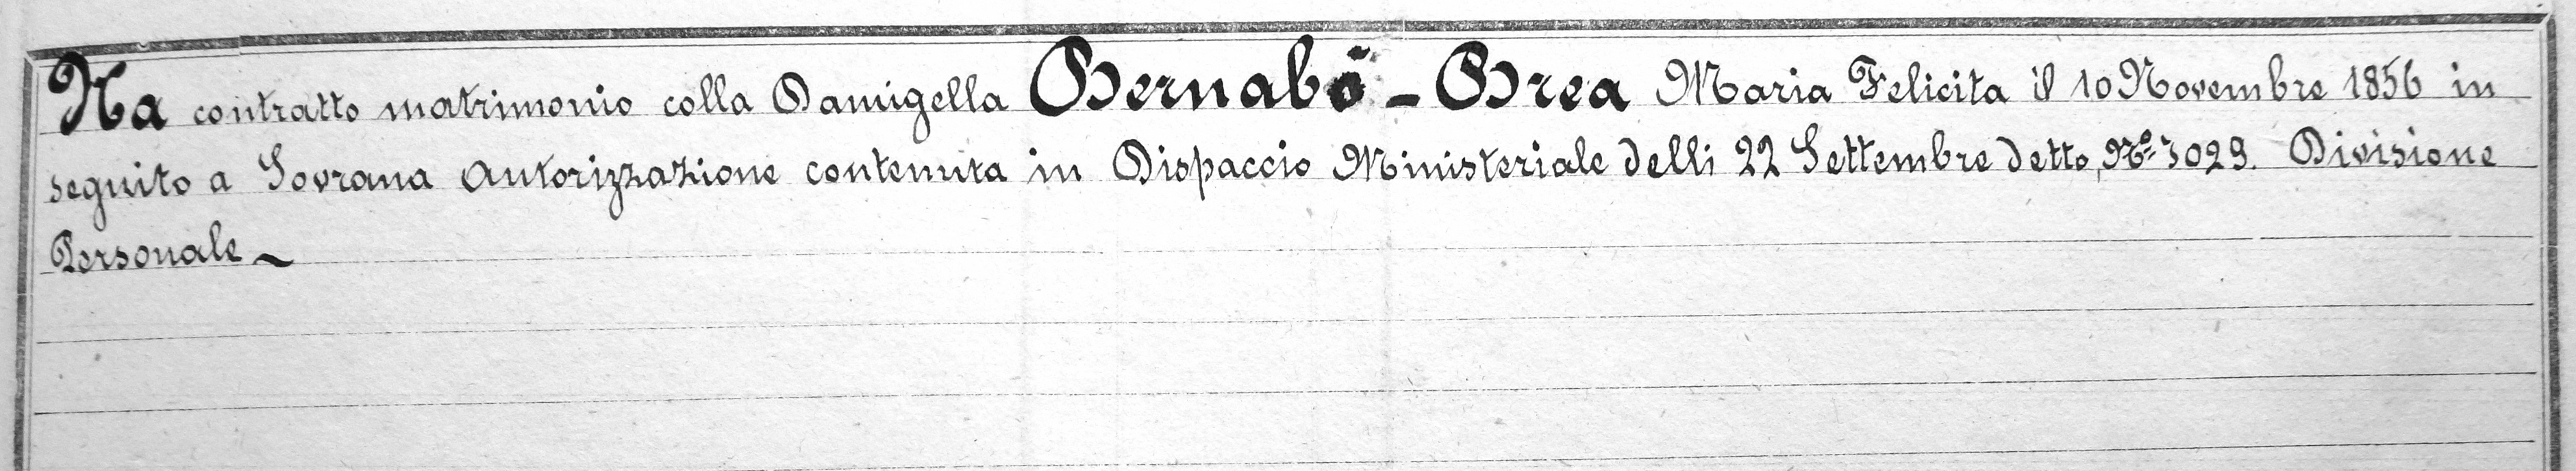 Ha contratto matrimonio colla Damigella Bernabò - Brea Maria Felicita il 10 Novembre 1856 in
seguito a Sovrana Autorizzazione contenuta in Dispaccio Ministeriale delli 22 Settembre detto, N.º 3029. Divisione
Personale ~